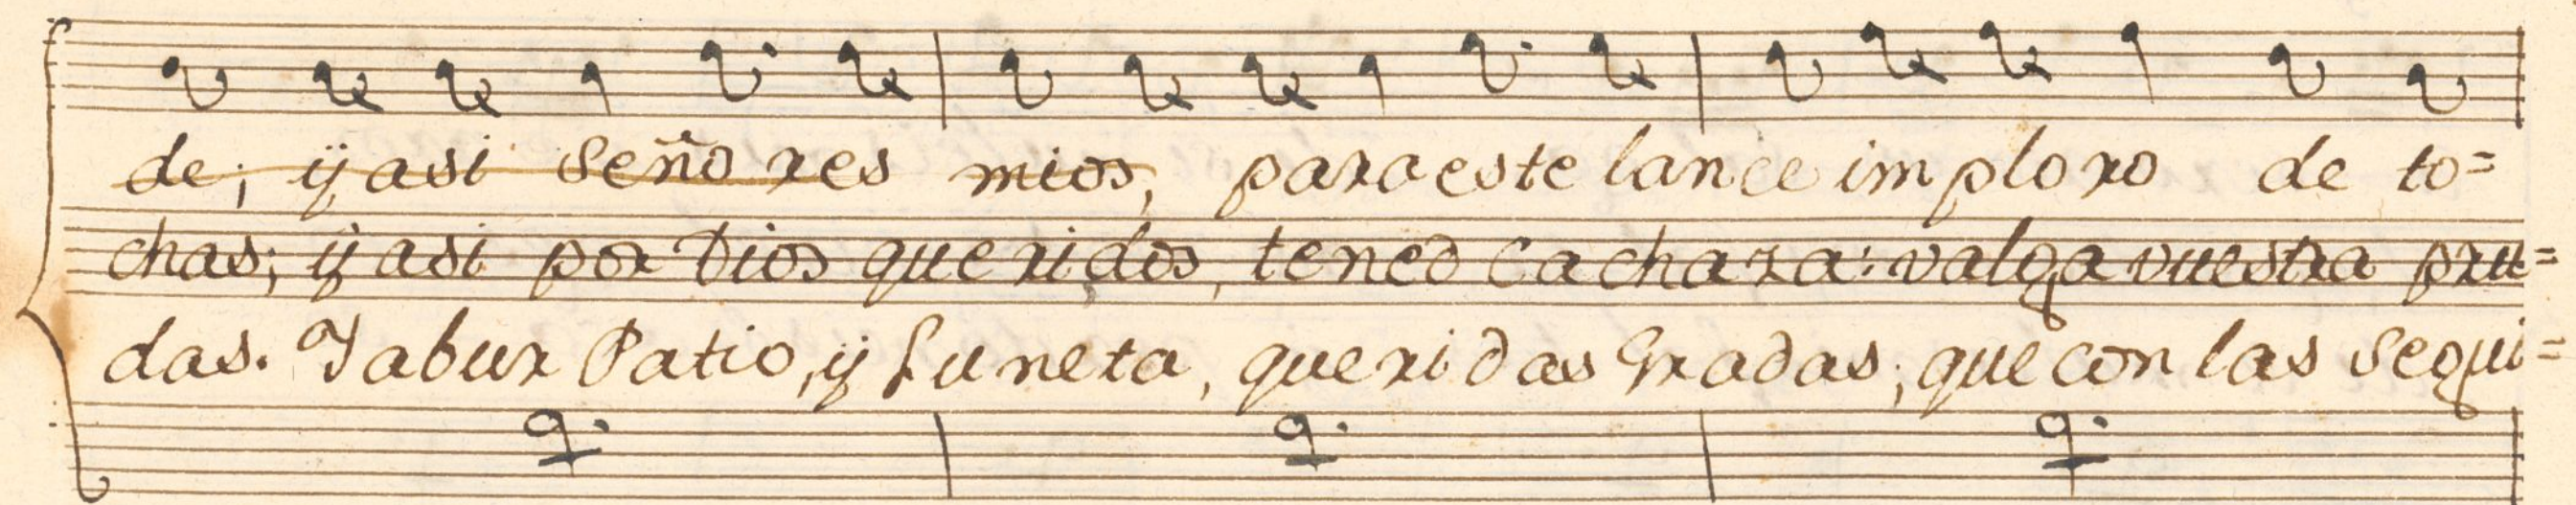 de; ÿ asi seño res mios, para este lance imploro de to=
chas; ÿ asi por Dios queridos, tened cachaza: valga vuestra pru=
das. Tabur Patio, ÿ Luneta, queridas Gradas; que con las segui=